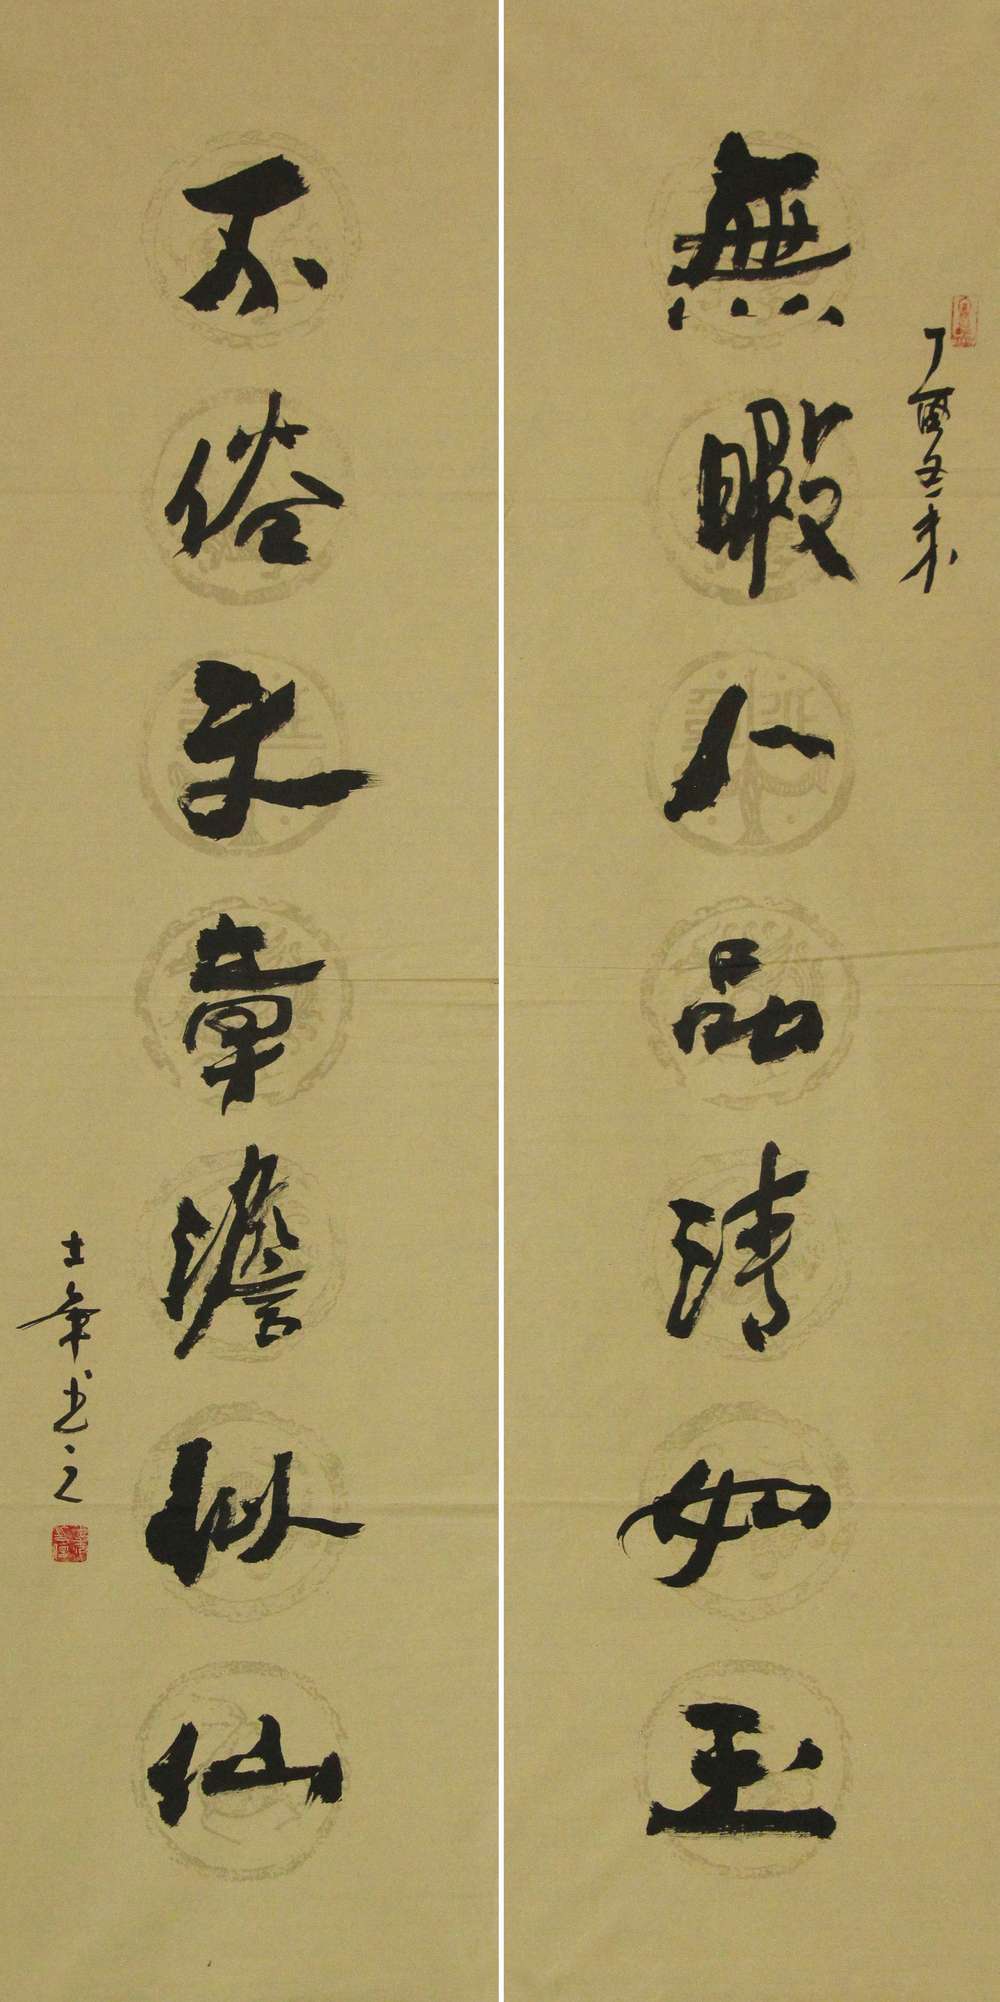 無暇人品清如玉
丁酉冬末
不俗文章澹似仙
士军书之